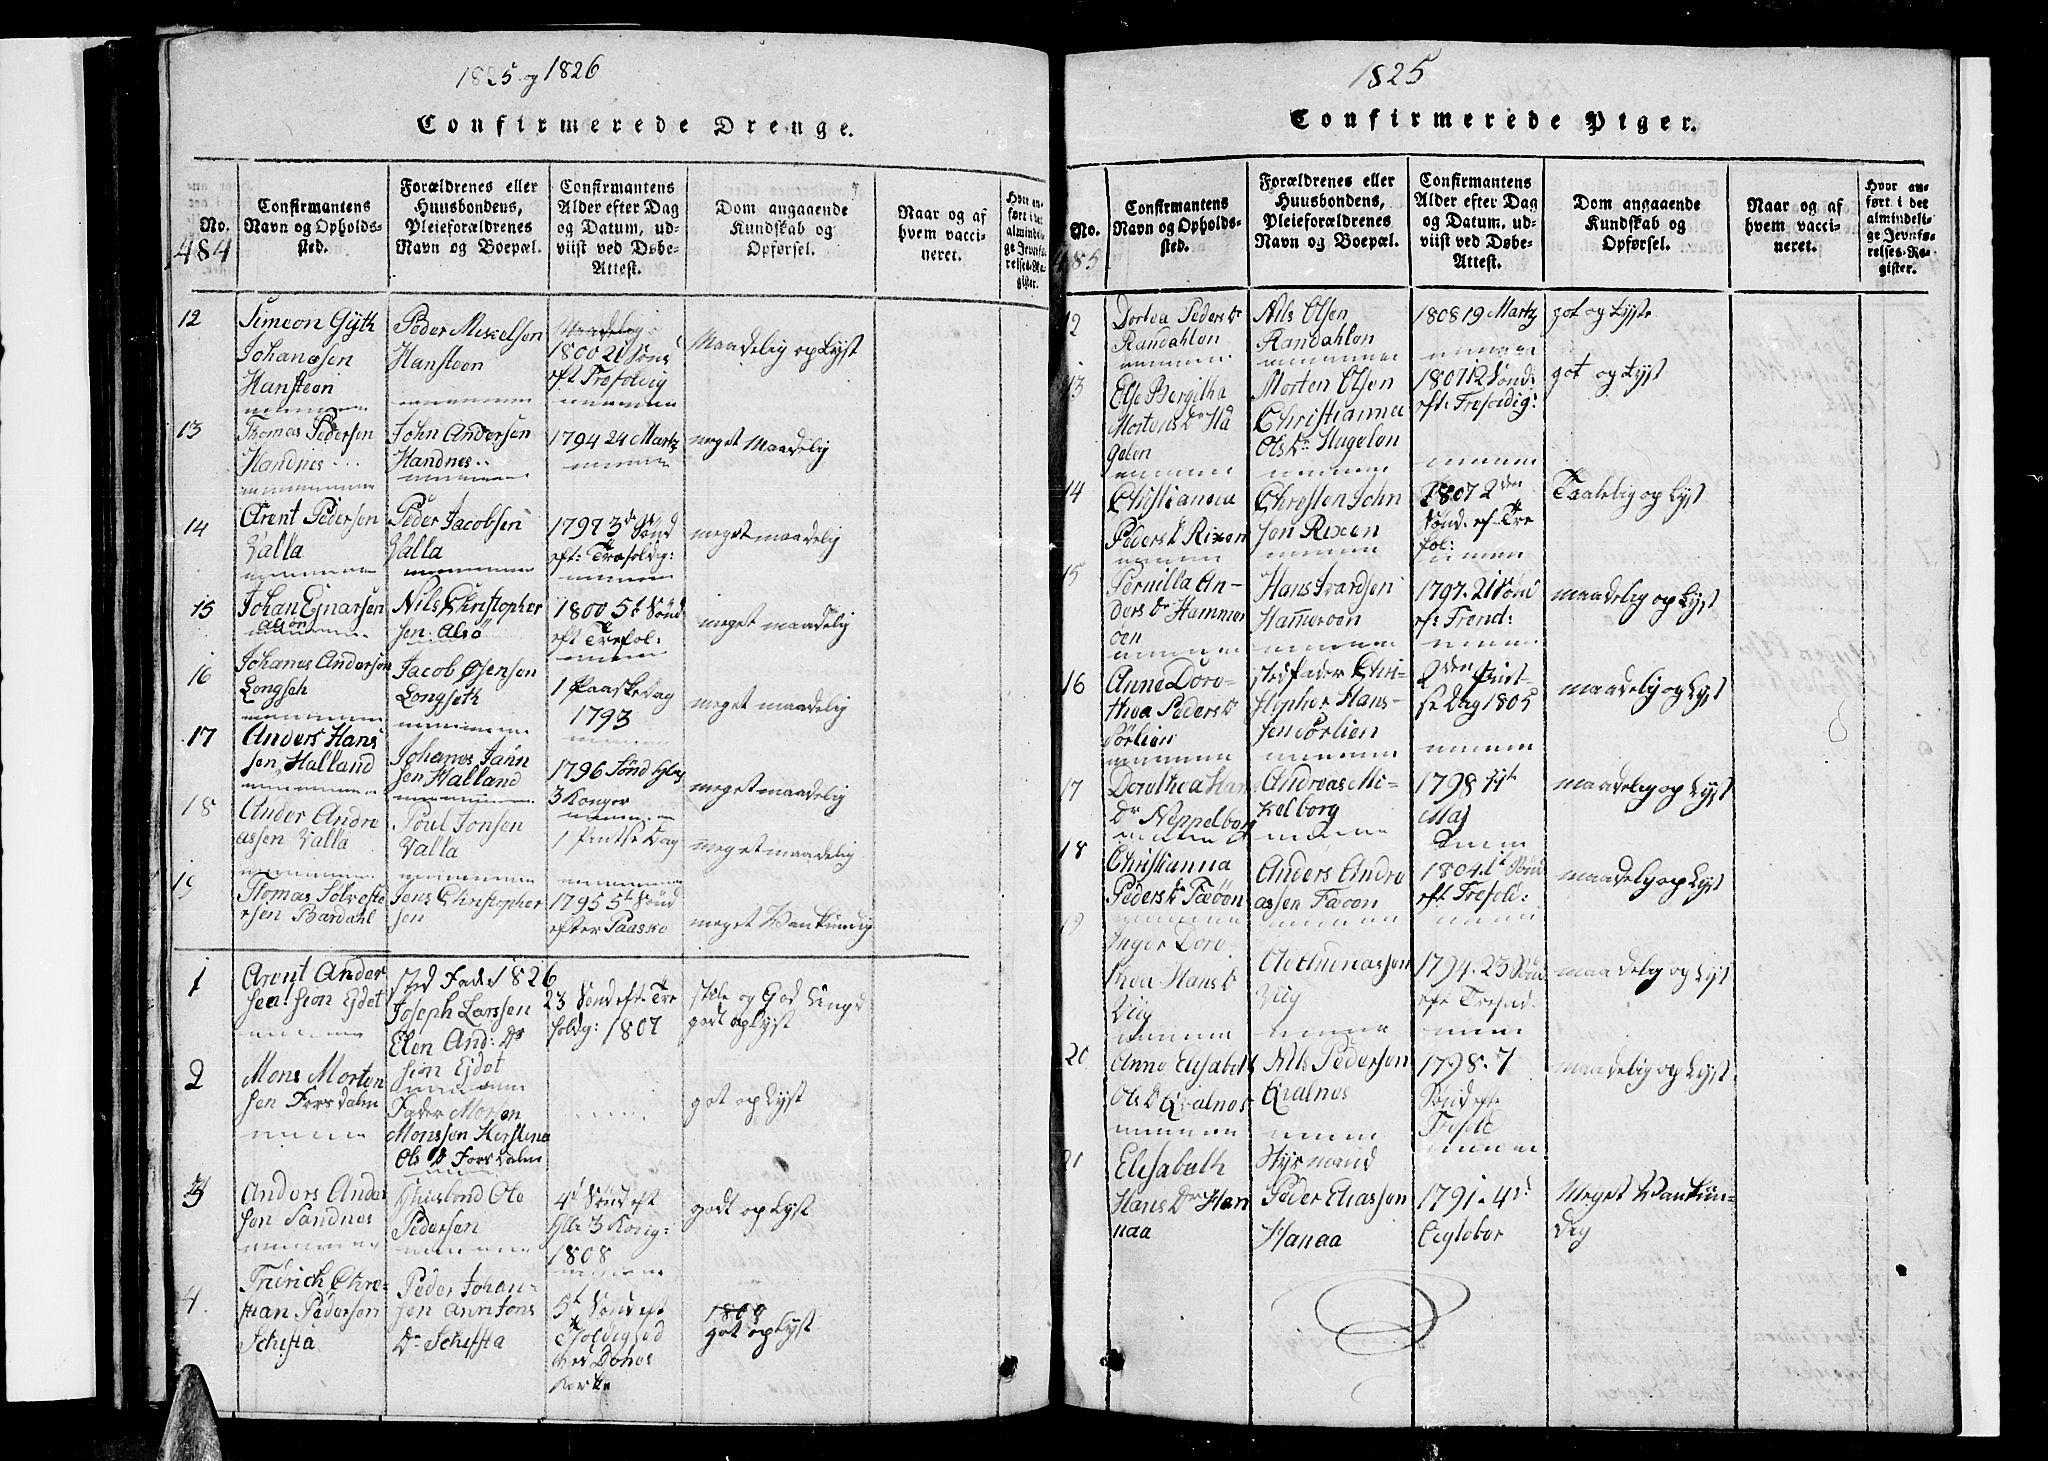 1825 og 1826
Confirmerede Drenge.
No.
484
Confirmantens
Navn og Opholds-
sted.
Forældrenes eller
Huusbondens,
Pleieforældrenes
Navn og Boepæl.
Confirmantens
Alder efter Dag
og Datum, ud-
viist ved Døbe-
Attest.
Dom angaaende
Kundskab og
Opførsel.
Naar og af
hvem vacci-
neret.
Hvor an-
ført i det
almindeli-
ge Jevnfø-
relses-Re-
gister.
12
Simeon Gyth
Johansen
Hansteen
Peder Mikelsen
Hansteen
1800 21 Sønd
eft Trefoldig
Maadelig oplyst
13
Thomas Pedersen
Handnes
John Andersen
Handnes
1794 24 Martz
meget Maadelig
14
Arent Pedersen
Valla
Peder Jacobsen
Valla
1797 3de Sønd
eft: Trefoldig:
meget maadelig
15
Johan Ejnarsen
Alsøn
Nils Christopher
sen Alsö
1800 5t Sønd
eft Trefol:
meget maadelig
16
Johanes Andersen
Longseh
Jacob Olsensen
Longseth
1 Paaskedag
1793
meget maadelig
17
Anders Hans
sen Halland
Johanes Jahn
sen Halland
1796 Sønd
3 Konger
meget maadelig
18
Ander Andre
assen Valla
Poul Jonsen
Valla
1 Pintse Dag
meget maadelig
19
Thomas Sølveste
rsen Bardahl
Jens Christopher
sen
1795 5t Sønd
efter Paaske
meget Vankundig
1
Arent Ander
sen Ejdet
Sted Fader 1826
Joseph Larssen
Elen And: Dr
Ejdet
23 Sønd eft Tre
foldg: 1807
godt oplyst
2
Mons Morten
sen Forsdalen
Fader Morten
Monssen Kirstene
Ols Dr Forsdalen
got oplyst
3
Anders Ander
sen Sandnes
Huusbond Ole
Pedersen
4d Sønd eft
Hll: 3 Kong:
1808
godt oplyst
4.
Friderich Chre-
stian Pedersen
Schefta
Peder Johan-
sen Anne Tons
Dr Scheffta
5t Sønd eft
ved Dønes
Kirke
1809
got oplyst
1825
Confirmerede Piger.
No.
485
Confirmantens
Navn og Opholds-
sted.
Forældrenes eller
Huusbondens,
Pleieforældrenes
Navn og Boepæl.
Confirmantens
Alder efter Dag
og Datum, ud-
viist ved Døbe-
Attest.
Dom angaaende
Kundskab og
Opførsel.
Naar og af
hvem vacci-
neret.
Hvor an-
ført i det
almindeli-
ge Jevnfø-
relses-Re-
gister.
12
Dortea Peders Dr
Randahlen
Nils Olsen
Randahlen
1808 19 Martz
got oplyste
13
Else Bergitha
Mortens Dr Ha
gelen
Morten Olsen
Christianna
Ols Dr Hagelen
1807 12 Sønd:
eft: Trefoldig:
got oplyst
14
Christianna
Peders Dr Rixen
Chresten John
sen Rixen
1807 2den
Sønd. ef. Tre
fol:
Taalelig oplyst
15
Pernilla An-
ders Dr Hammer
øen
Hans Ivardsen
Hammerøen
1797. 21 Sønd
ef: Trend:
maadelig oplyst
16
Anne Doro-
thea Peders Dr
Sørlien
Stedfader Chri-
stopher Hans-
sen Sørlien
2den Pint-
se Dag 1805
maadelig oplyst
17
Dorothea Han
Dr Neppelborg
Andreas Mi-
kelborg
1798 11t
Maj
maadelig oplyst
18
Christianna
Peders Dr Fæöen
Anders Andre
assen Fæøen
1804 1t Sønd
eft Trefold:
maadelig oplyst
19
Inger Doro-
thea Hans Dr
Viig
Ole Andreassen
Viig
1794. 23 Sønd
eft Trefold.
maadelig oplyst
20
Anne Elisabeth
Ols Dr Qvalnes
Nils Pedersen
Qvalnes
1798. 7
Sønd eft
Trefold
maadelig oplyst
21
Elisabeth
Hans Dr Han
naa
Styrmand
Peder Eliassen
Hanaa
1791. 4d
Octobor
Meget Vankun-
dig